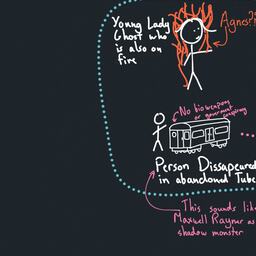 Young Lady
Ghost who
is also on
fire
Agnes?!
No bioweapons
or government
conspiracy
Person Dissapeared
in abandoned Tube
This sounds like
Maxwell Rayner as
shadow monster